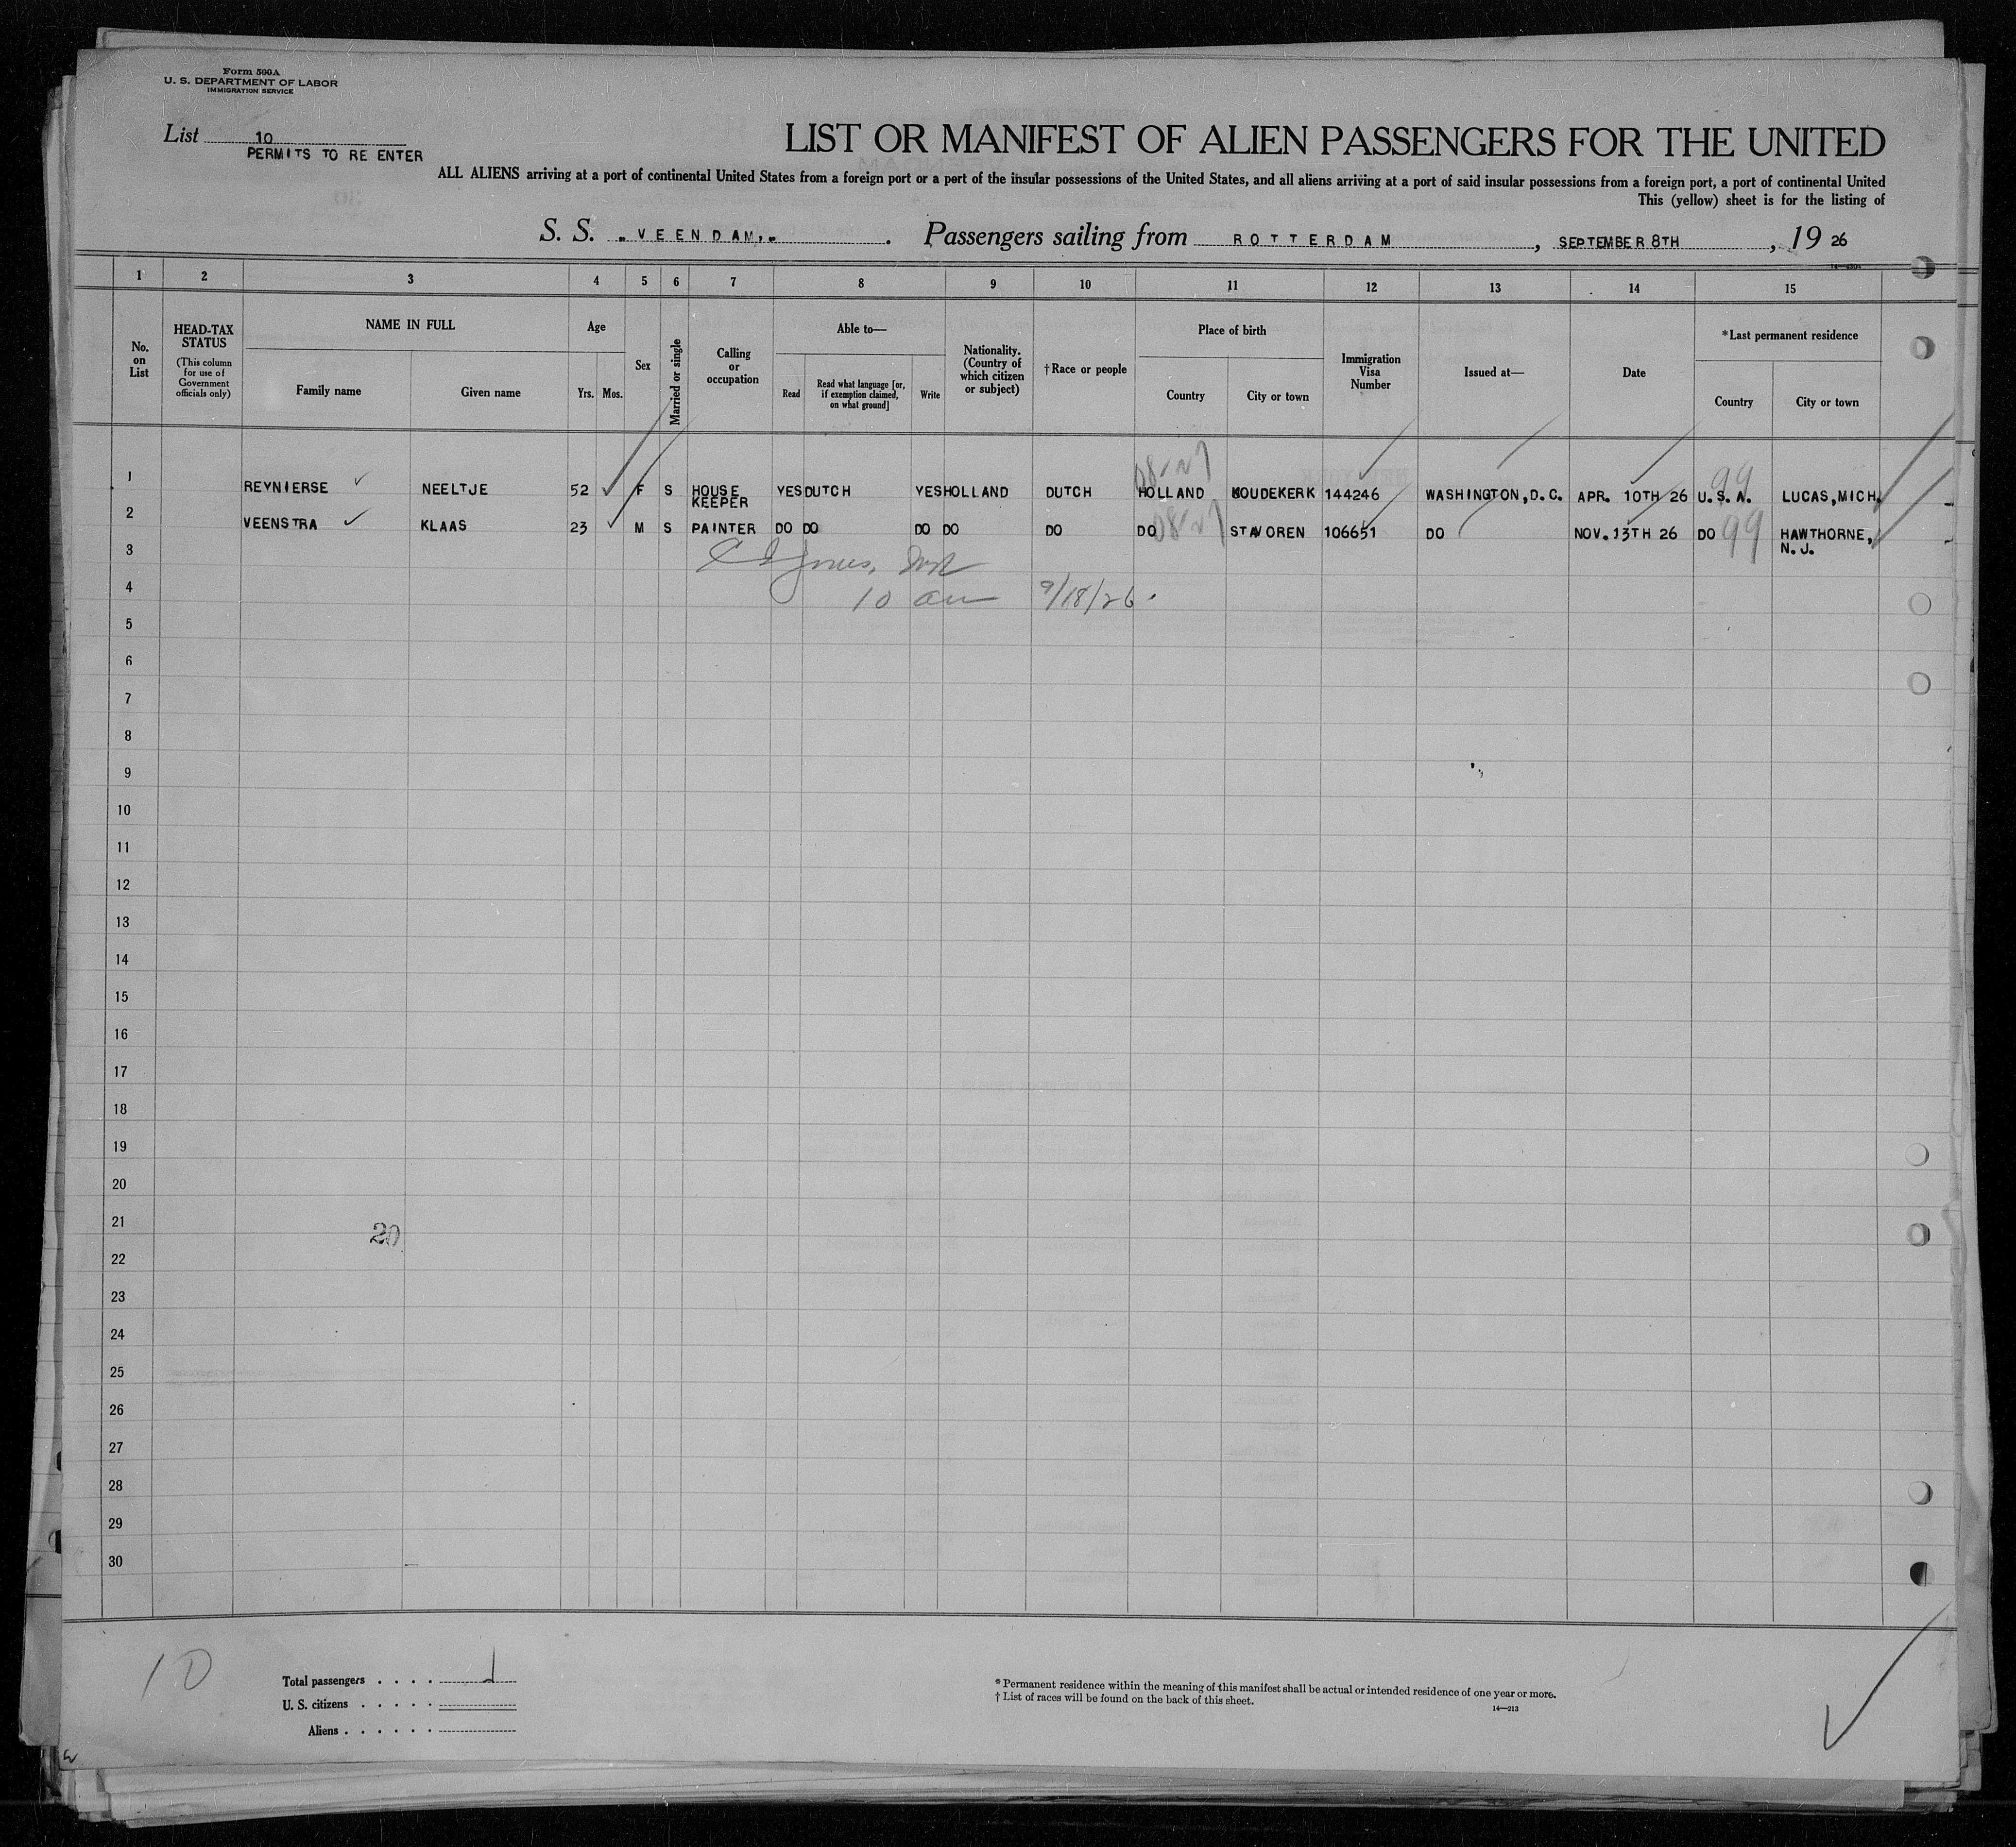 Form 500A
U. S. DEPARTMENT OF LABOR
IMMIGRATION SERVICE
List 10
PERMITS TO RE ENTER
LIST OR MANIFEST OF ALIEN PASSENGERS FOR THE UNITED
ALL ALIENS arriving at a port of continental United States from a foreign port or a port of the insular possessions of the United States, and all aliens arriving at a port of said insular possessions from a foreign port, a port of continental United
This (yellow) sheet is for the listing of
S. S. "VEENDAM,". Passengers sailing from ROTTERDAM, SEPTEMBER 8TH, 19 26
1 2 3 4 5 6 7 8 9 10 11 12 13 14 15
No. on List
HEAD-TAX STATUS
(This column for use of Government officials only)
NAME IN FULL
Family name Given name
Age
Yrs. Mos.
Sex
Married or single
Calling or occupation
Able to—
Read Read what language [or, if exemption claimed, on what ground] Write
Nationality. (Country of which citizen or subject)
†Race or people
Place of birth
Country City or town
Immigration Visa Number
Issued at—
Date
*Last permanent residence
Country City or town
1 REYNIERSE NEELTJE 52 F S HOUSE KEEPER YES DUTCH YES HOLLAND DUTCH HOLLAND KOUDEKERK 144246 WASHINGTON,D.C. APR. 10TH 26 U.S.A. LUCAS,MICH.
99
2 VEENSTRA KLAAS 23 M S PAINTER DO DO DO DO DO DO STAVOREN 106651 DO NOV.13TH 26 DO 99 HAWTHORNE, N.J.
3
4 10 am 9/18/26.
5
6
7
8
9
10
11
12
13
14
15
16
17
18
19
20
21
20
22
23
24
25
26
27
28
29
30
10
Total passengers . . . .
U. S. citizens . . . . .
Aliens . . . . . .
* Permanent residence within the meaning of this manifest shall be actual or intended residence of one year or more.
† List of races will be found on the back of this sheet.
14—213